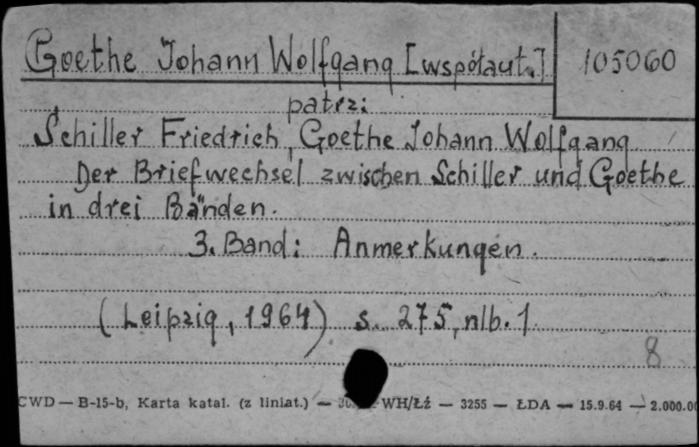 Goethe Johann Wolfgang [współaut.] 105060
patrz:
Schiller Friedrich, Goethe Johann Wolfgang
Der Briefwechsel zwischen Schiller und Goethe
in drei Bänden.
3. Band: Anmerkungen.
(Leipzig, 1964) s. 275, nlb. 1
8
CWD — B-15-b, Karta katal. (z liniat.) — WH/Łż — 3255 — ŁDA — 15.9.64 — 2.000.00